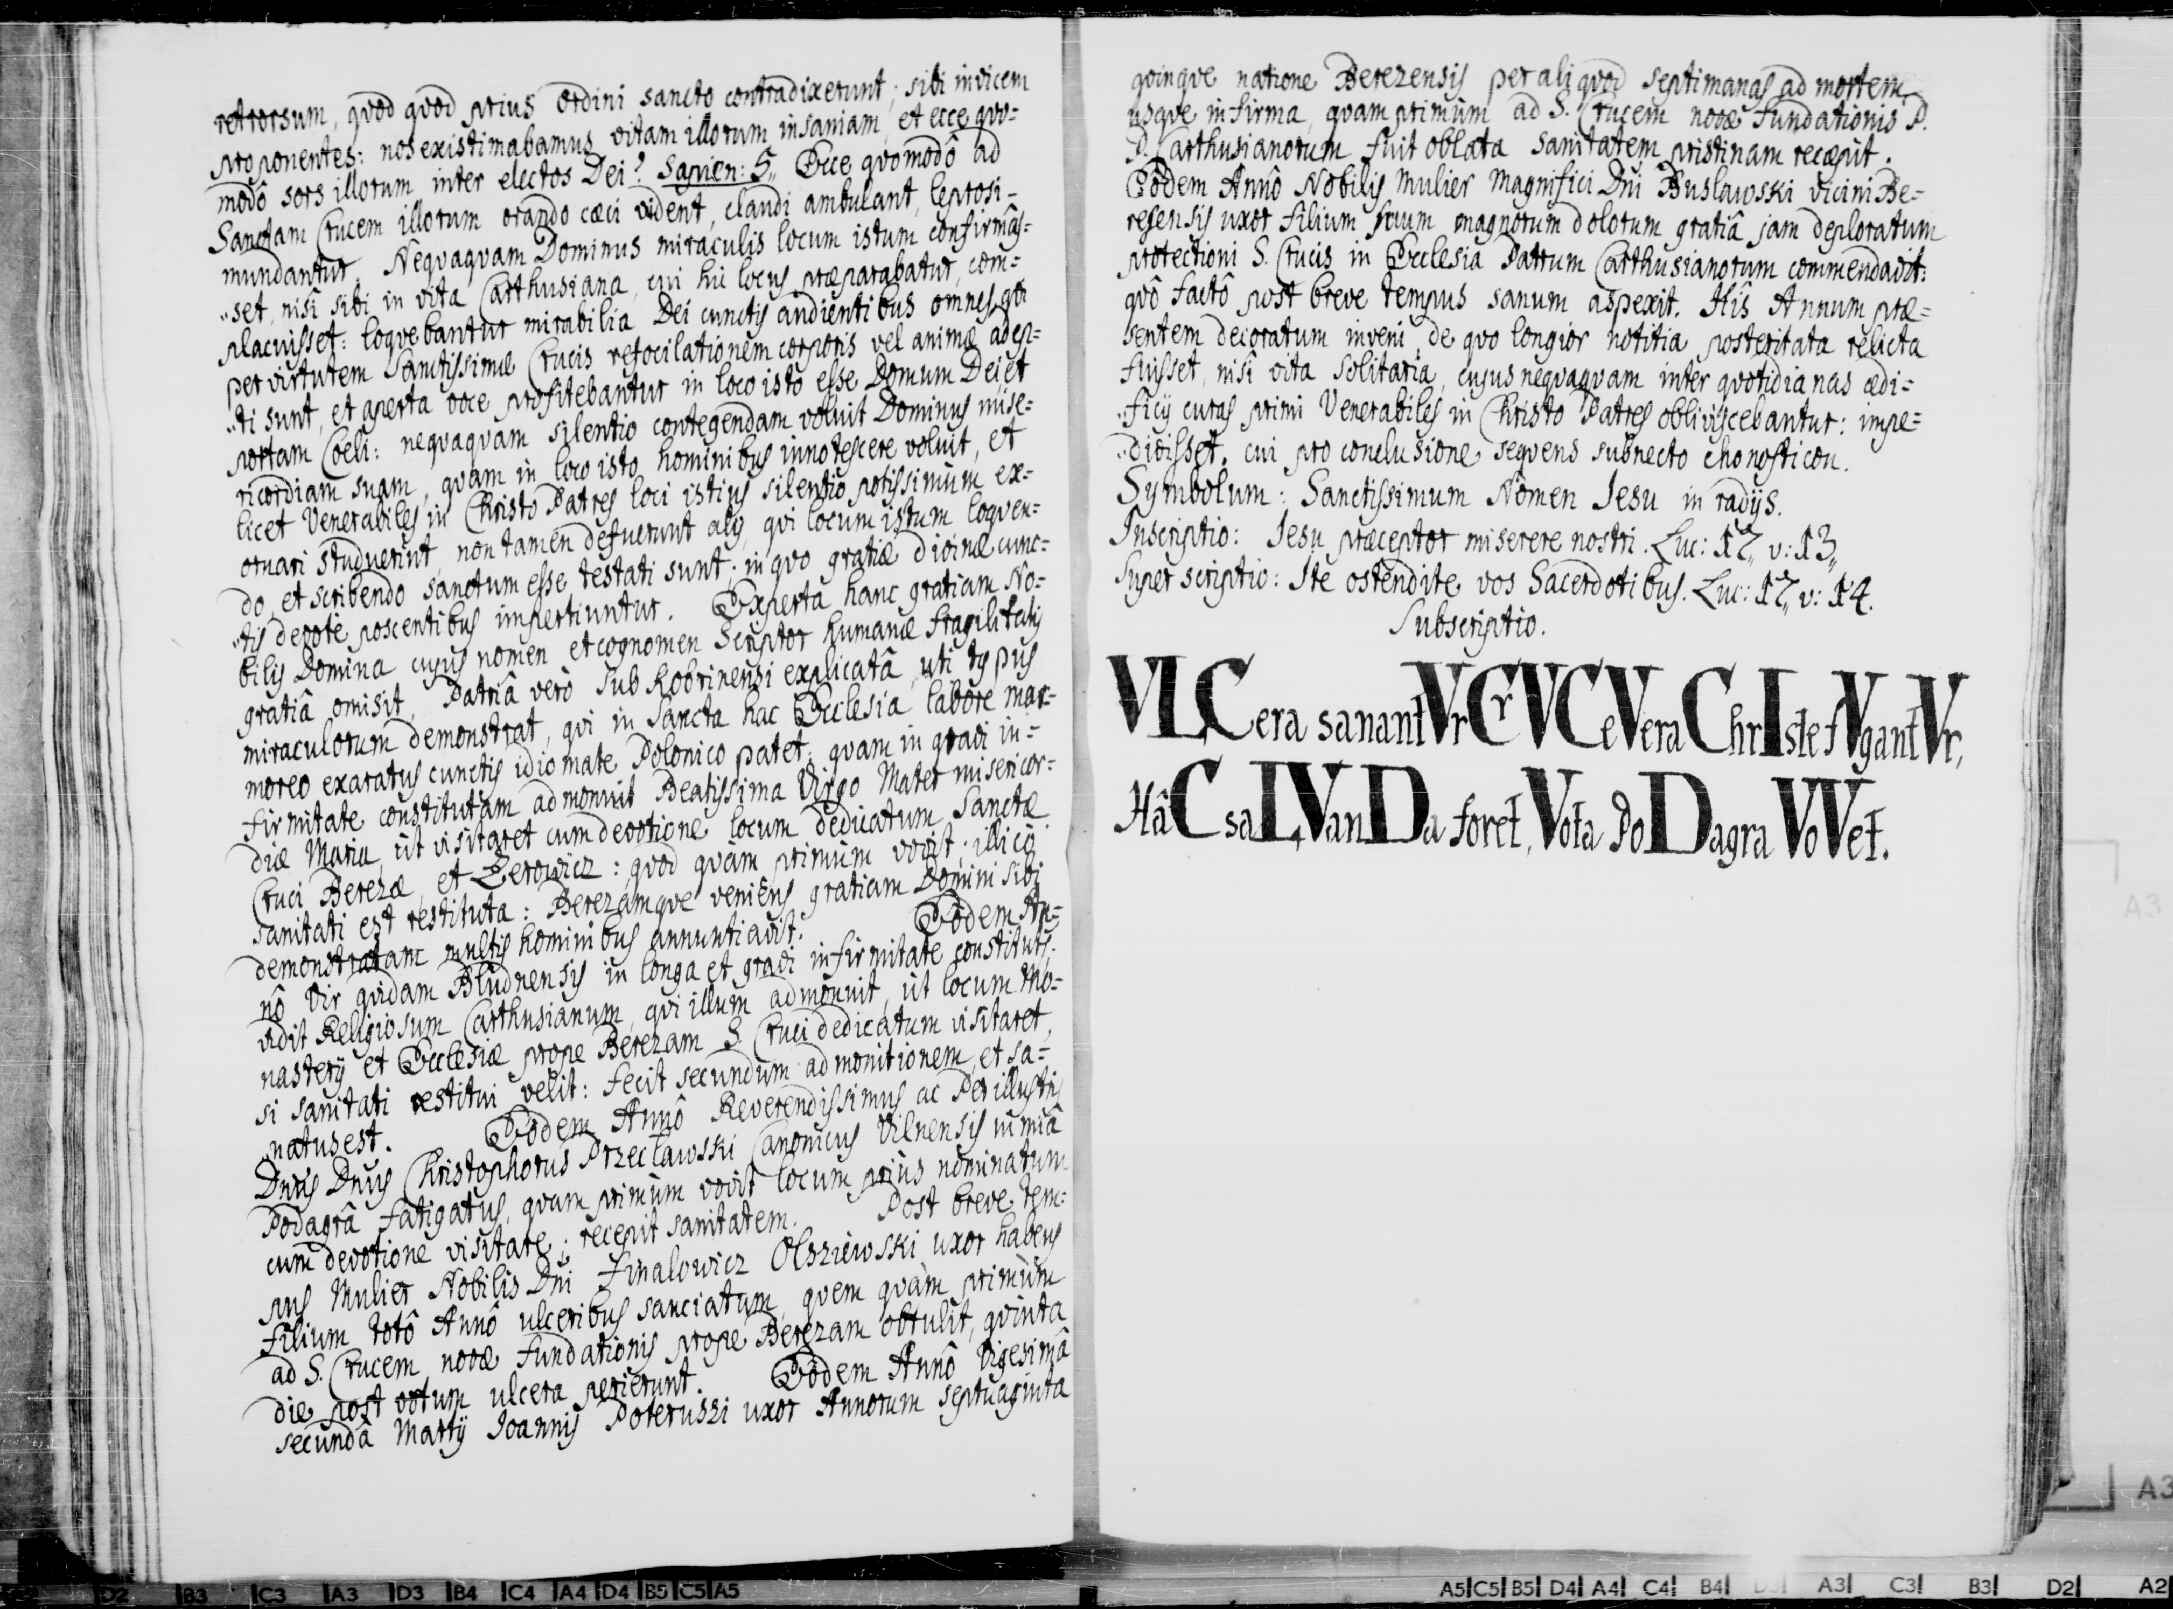 retrorsum, quod quod prius Ordini sancto contradixerunt; sibi invicem
proponentes: nos existimabamus vitam illorum insaniam, et ecce quo=
modô sors illorum inter electos Dei? Sapien: 5,, Ecce quomodô ad
Sanctam Crucem illorum orando cæci vident, claudi ambulant, leprosi=
mundantur. Nequaquam Dominus miraculis locum istum confirmâs=
,,set, nisi sibi in vita Carthusiana, cui hic locus præparabatur, com=
placuisset: loquebantur mirabilia Dei cunctis audientibus omnes qui
per virtutem Sanctissimæ Crucis refocilationem corporis vel animæ adep=
,,ti sunt, et aperta voce profitebantur in loco isto esse Domum Dei, et
portam Cœli: nequaquam silentio contegendam voluit Dominus mise=
ricordiam suam, quam in loco isto hominibus innotescere voluit, et
licet Venerabiles in Christo Patres loci istius silentio potissimùm ex=
ornari studuerint, non tamen defuerunt alij, qui locum istum loquen=
do, et scribendo sanctum esse testati sunt; in quo gratiæ divinæ cunc=
,,tis devote poscentibus impertiuntur. Experta hanc gratiam No=
bilis Domina cujus nomen et cognomen Scriptor humanæ fragilitatis
gratiâ omisit, Patriâ verò sub Kobrinensi explicatâ, uti typus
miraculorum demonstrat, qui in Sancta hac Ecclesia labore mar=
moreo exaratus cunctis idiomate Polonico patet: quam in gravi in=
firmitate constitutam admonuit Beatissima Virgo Mater misericor=
diæ Maria, ùt visitaret cum devotione locum dedicatum Sanctæ
Cruci Berezæ, et Zerowicz: quod quàm primùm vovit; illicò
sanitati est restituta: Berezamque veniens gratiam Domini sibi
demonstratam multis hominibus annuntiavit. Eôdem An=
nô Vir quidam Bludnensis in longa et gravi infirmitate constituts,
vidit Religiosum Carthusianum, qui illum admonuit, ùt locum Mo=
nasterij et Ecclesiæ prope Berezam S. Cruci dedicatum visitaret,
si sanitati restitui velit: fecit secundum admonitionem, et sa=
natus est. Eôdem Annô Reverendissimus ac Perillustris
Dnus Dnus Christophorus Przecławski Canonicus Vilnensis nimiâ
Podagrâ fatigatus, quam primùm vovit locum priùs nominatum
cum devotione visitare; recepit sanitatem. Post breve tem=
pus Mulier Nobilis Dni Jmalowicz Olsziewski uxor habens
filium totô Annô ulceribus sauciatum, quem quàm primùm
ad S. Crucem novæ fundationis prope Berezam obtulit, quinta
die post votum ulcera perierunt. Eôdem Annô Vigesimâ
secundâ Martij Joannis Poteruszi uxor Annorum septuaginta
quinque natione Berezensis per aliquod septimanas ad mortem
usque infirma, quam primùm ad S. Crucem novæ Fundationis P.
P. Carthusianorum fuit oblata sanitatem pristinam recæpit.
Eôdem Annô Nobilis Mulier Magnifici Dni Busławski vicini Be=
resensis uxor filium suum magnorum dolorum gratiâ jam deploratum
protectioni S. Crucis in Ecclesia Patrum Carthusianorum commendavit:
quô factô post breve tempus sanum aspexit. Hîs Annum præ=
sentem decoratum inveni, de quo longior notitia posteritata relicta
fuisset, nisi vita solitaria, cujus nequaquam inter quotidianas ædi=
,,ficij curas primi Venerabiles in Christo Patres obliviscebantur: impe=
,,divisset, cui pro conclusione sequens subnecto chonosticon.
Symbolum: Sanctissimum Nomen Jesu in radijs.
Inscriptio: Jesu præceptor miserere nostri. Luc: 17,, v: 13,,
Super scriptio: Ite ostendite vos Sacerdotibus. Luc: 17,, v: 14.
Subscriptio.
VLCera sanantVr CrVCe Vera ChrIste fVgantVr,
HâC saLVanDa foret, Vota PoDagra VoVet.